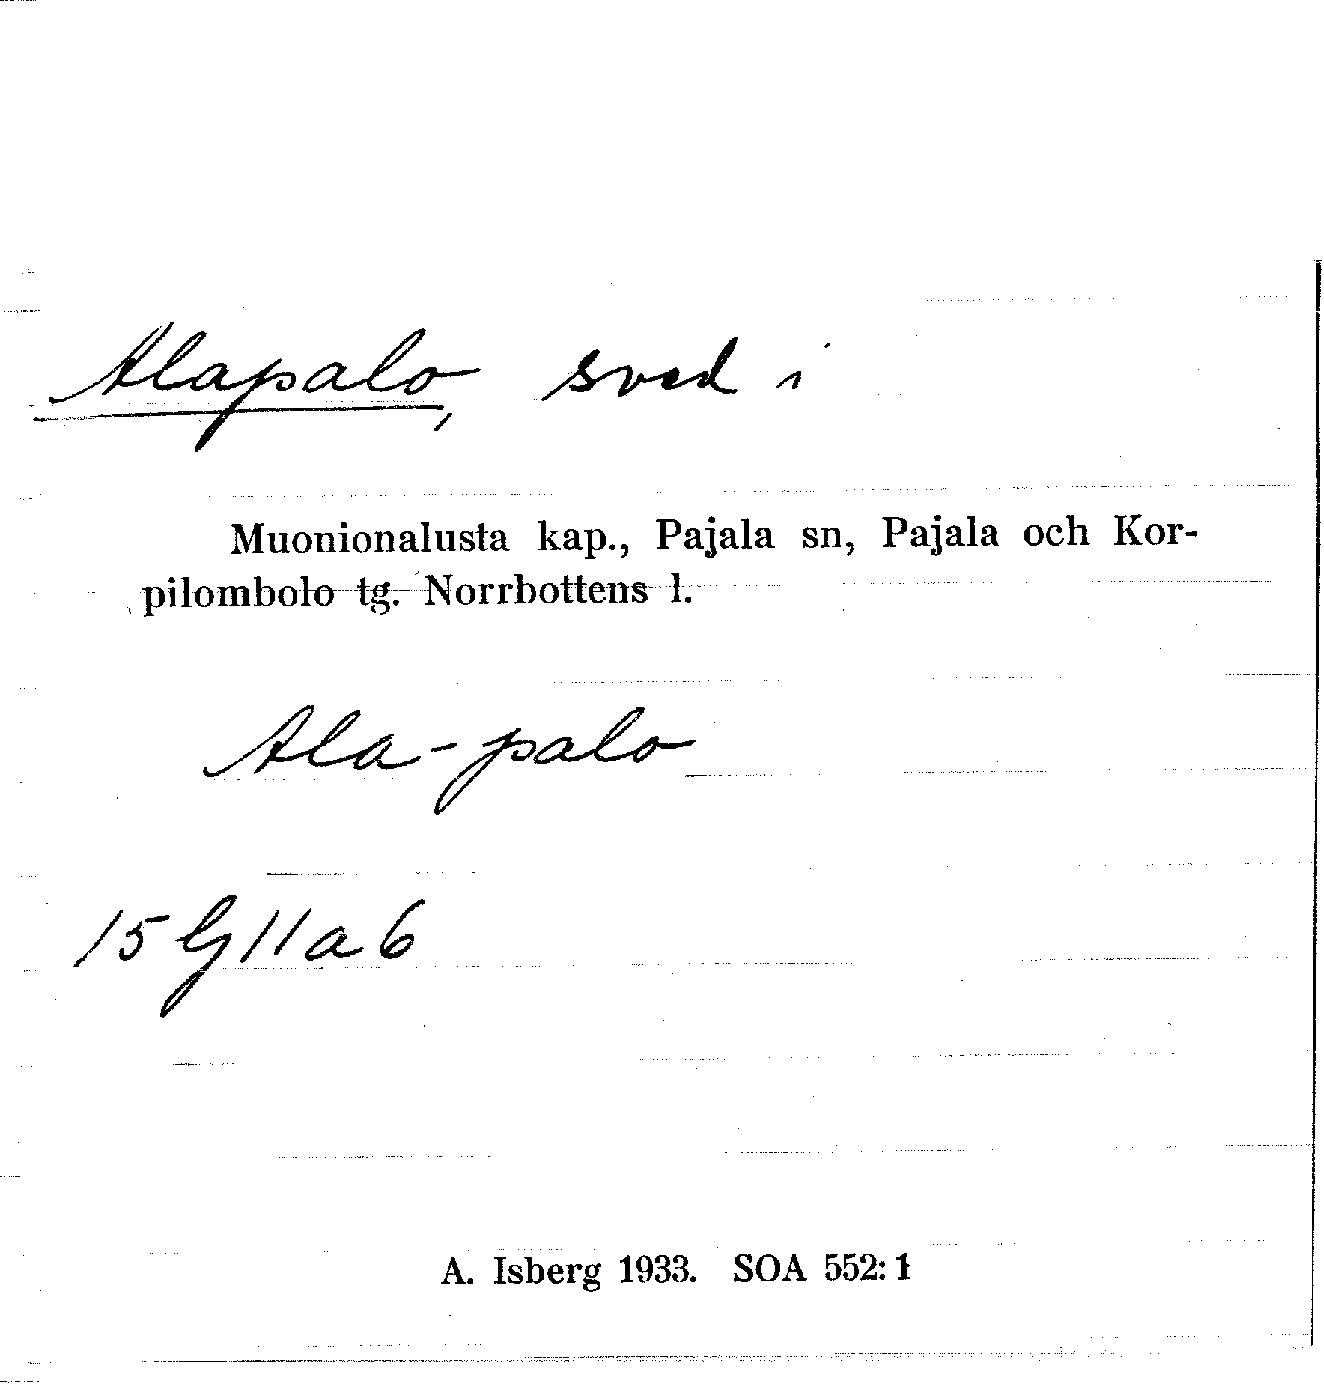 Alapalo, sved i
Muonionalusta kap., Pajala sn, Pajala och Kor-
pilombolo tg. Norrbottens l.
Ala-palo
15 G 11 a 6
A. Isberg 1933. SOA 552: 1